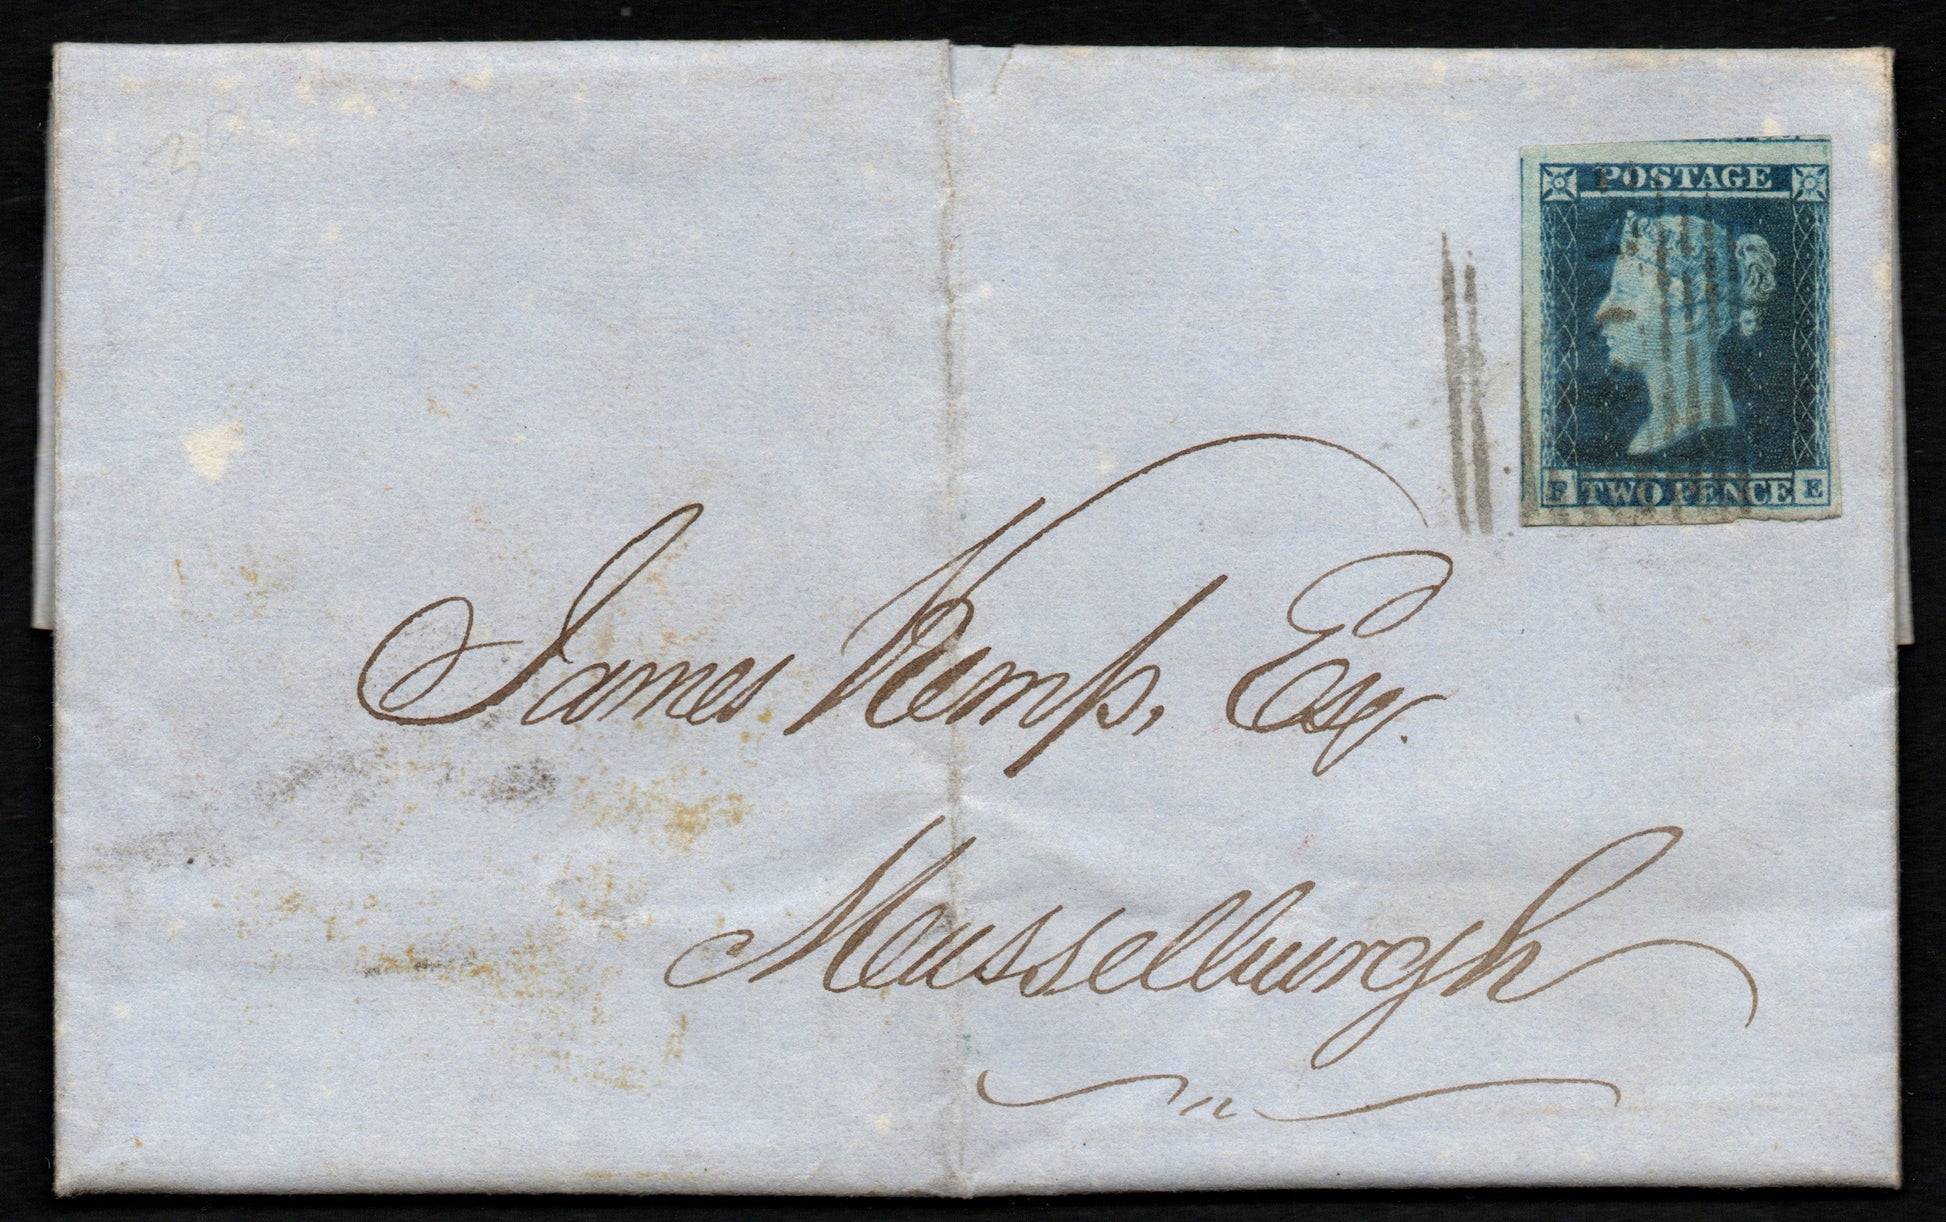 POSTAGE
F TWO PENCE E
James Kemp, Esq.
Musselburgh